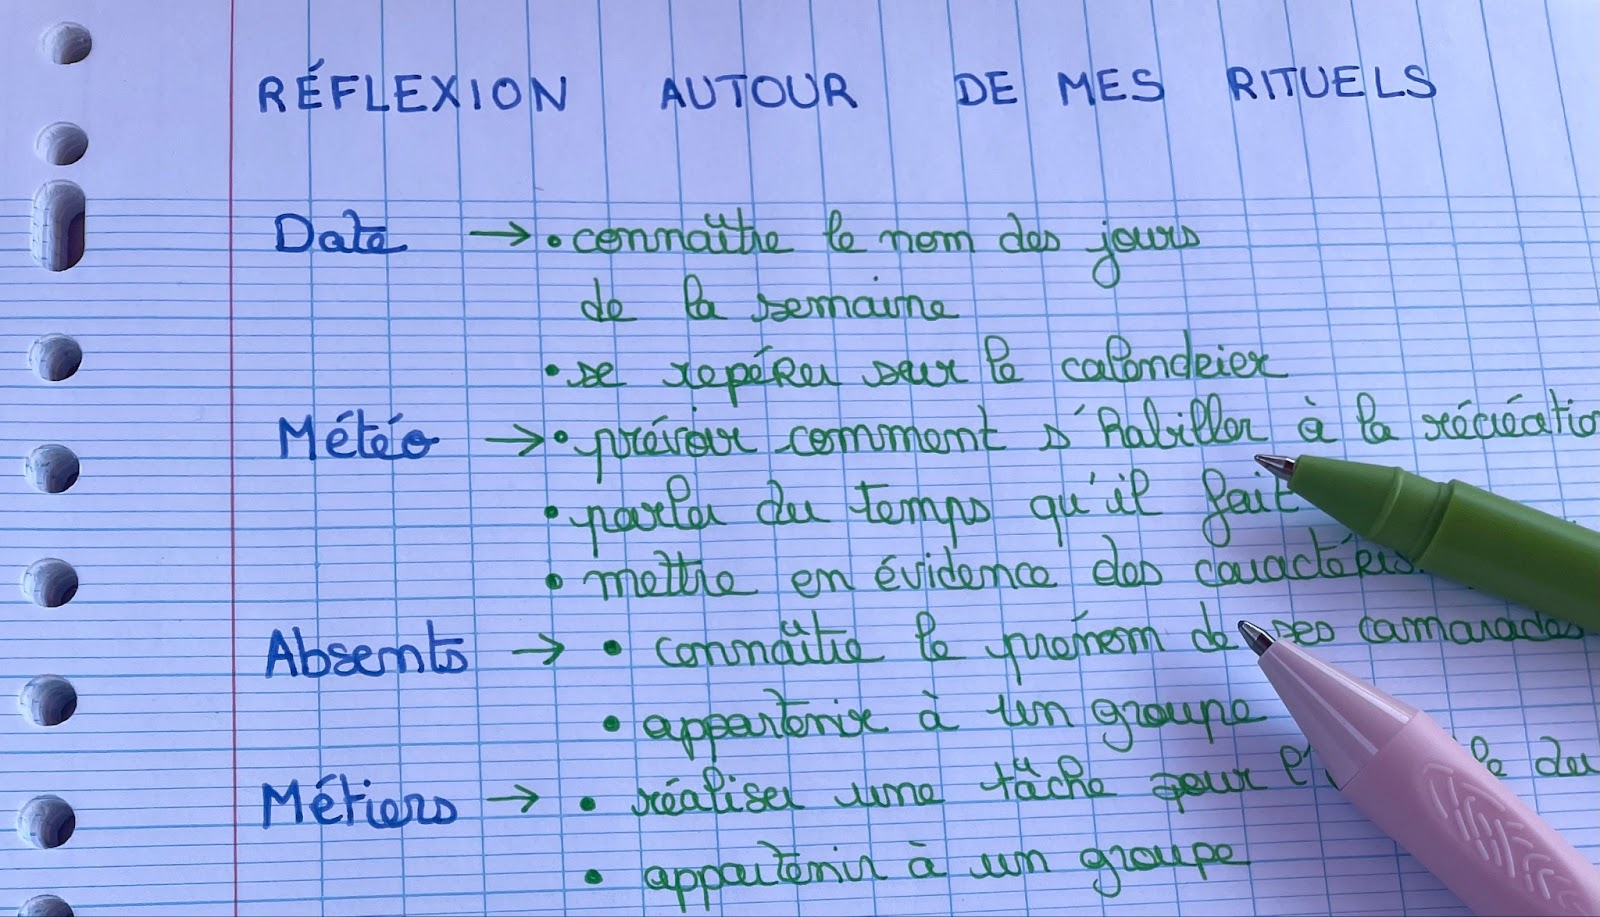 RÉFLEXION AUTOUR DE MES RITUELS
Date → • connaître le nom des jours
de la semaine
• se repérer sur le calendrier
Météo → • prévoir comment s'habiller à la récréatio
• parler du temps qu'il fait
• mettre en évidence des caractéris
Absents → • connaître le prénom de ses camarades
• appartenir à un groupe
Métiers → • réaliser une tâche pour l' du
• appartenir à un groupe